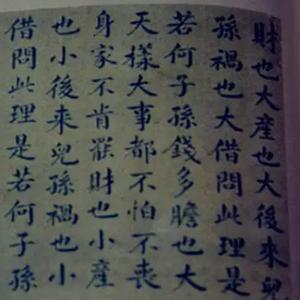 財也大產也大後來兒
孫禍也大借問此理是
若何子孫錢多膽也大
天樣大事都不怕不喪
身家不肯罷財也小產
也小後來兒孫禍也小
借問此理是若何子孫